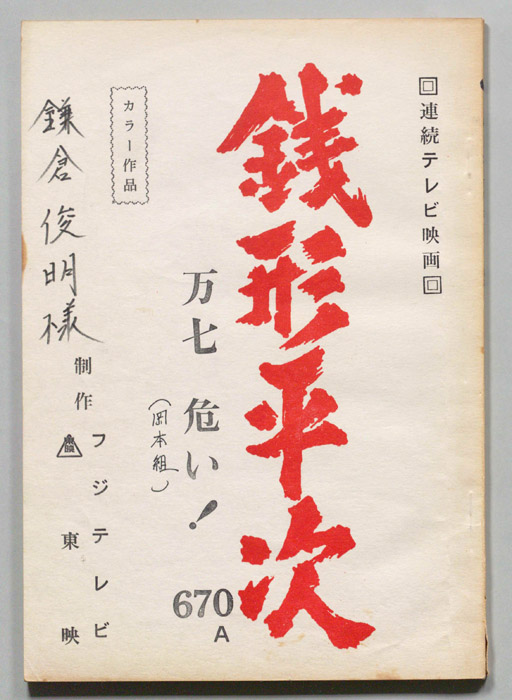 回連続テレビ映画回
銭形平次
万七 危い!
(岡本組)
670
A
カラー作品
鎌倉俊明様
制作
フジテレビ
東映